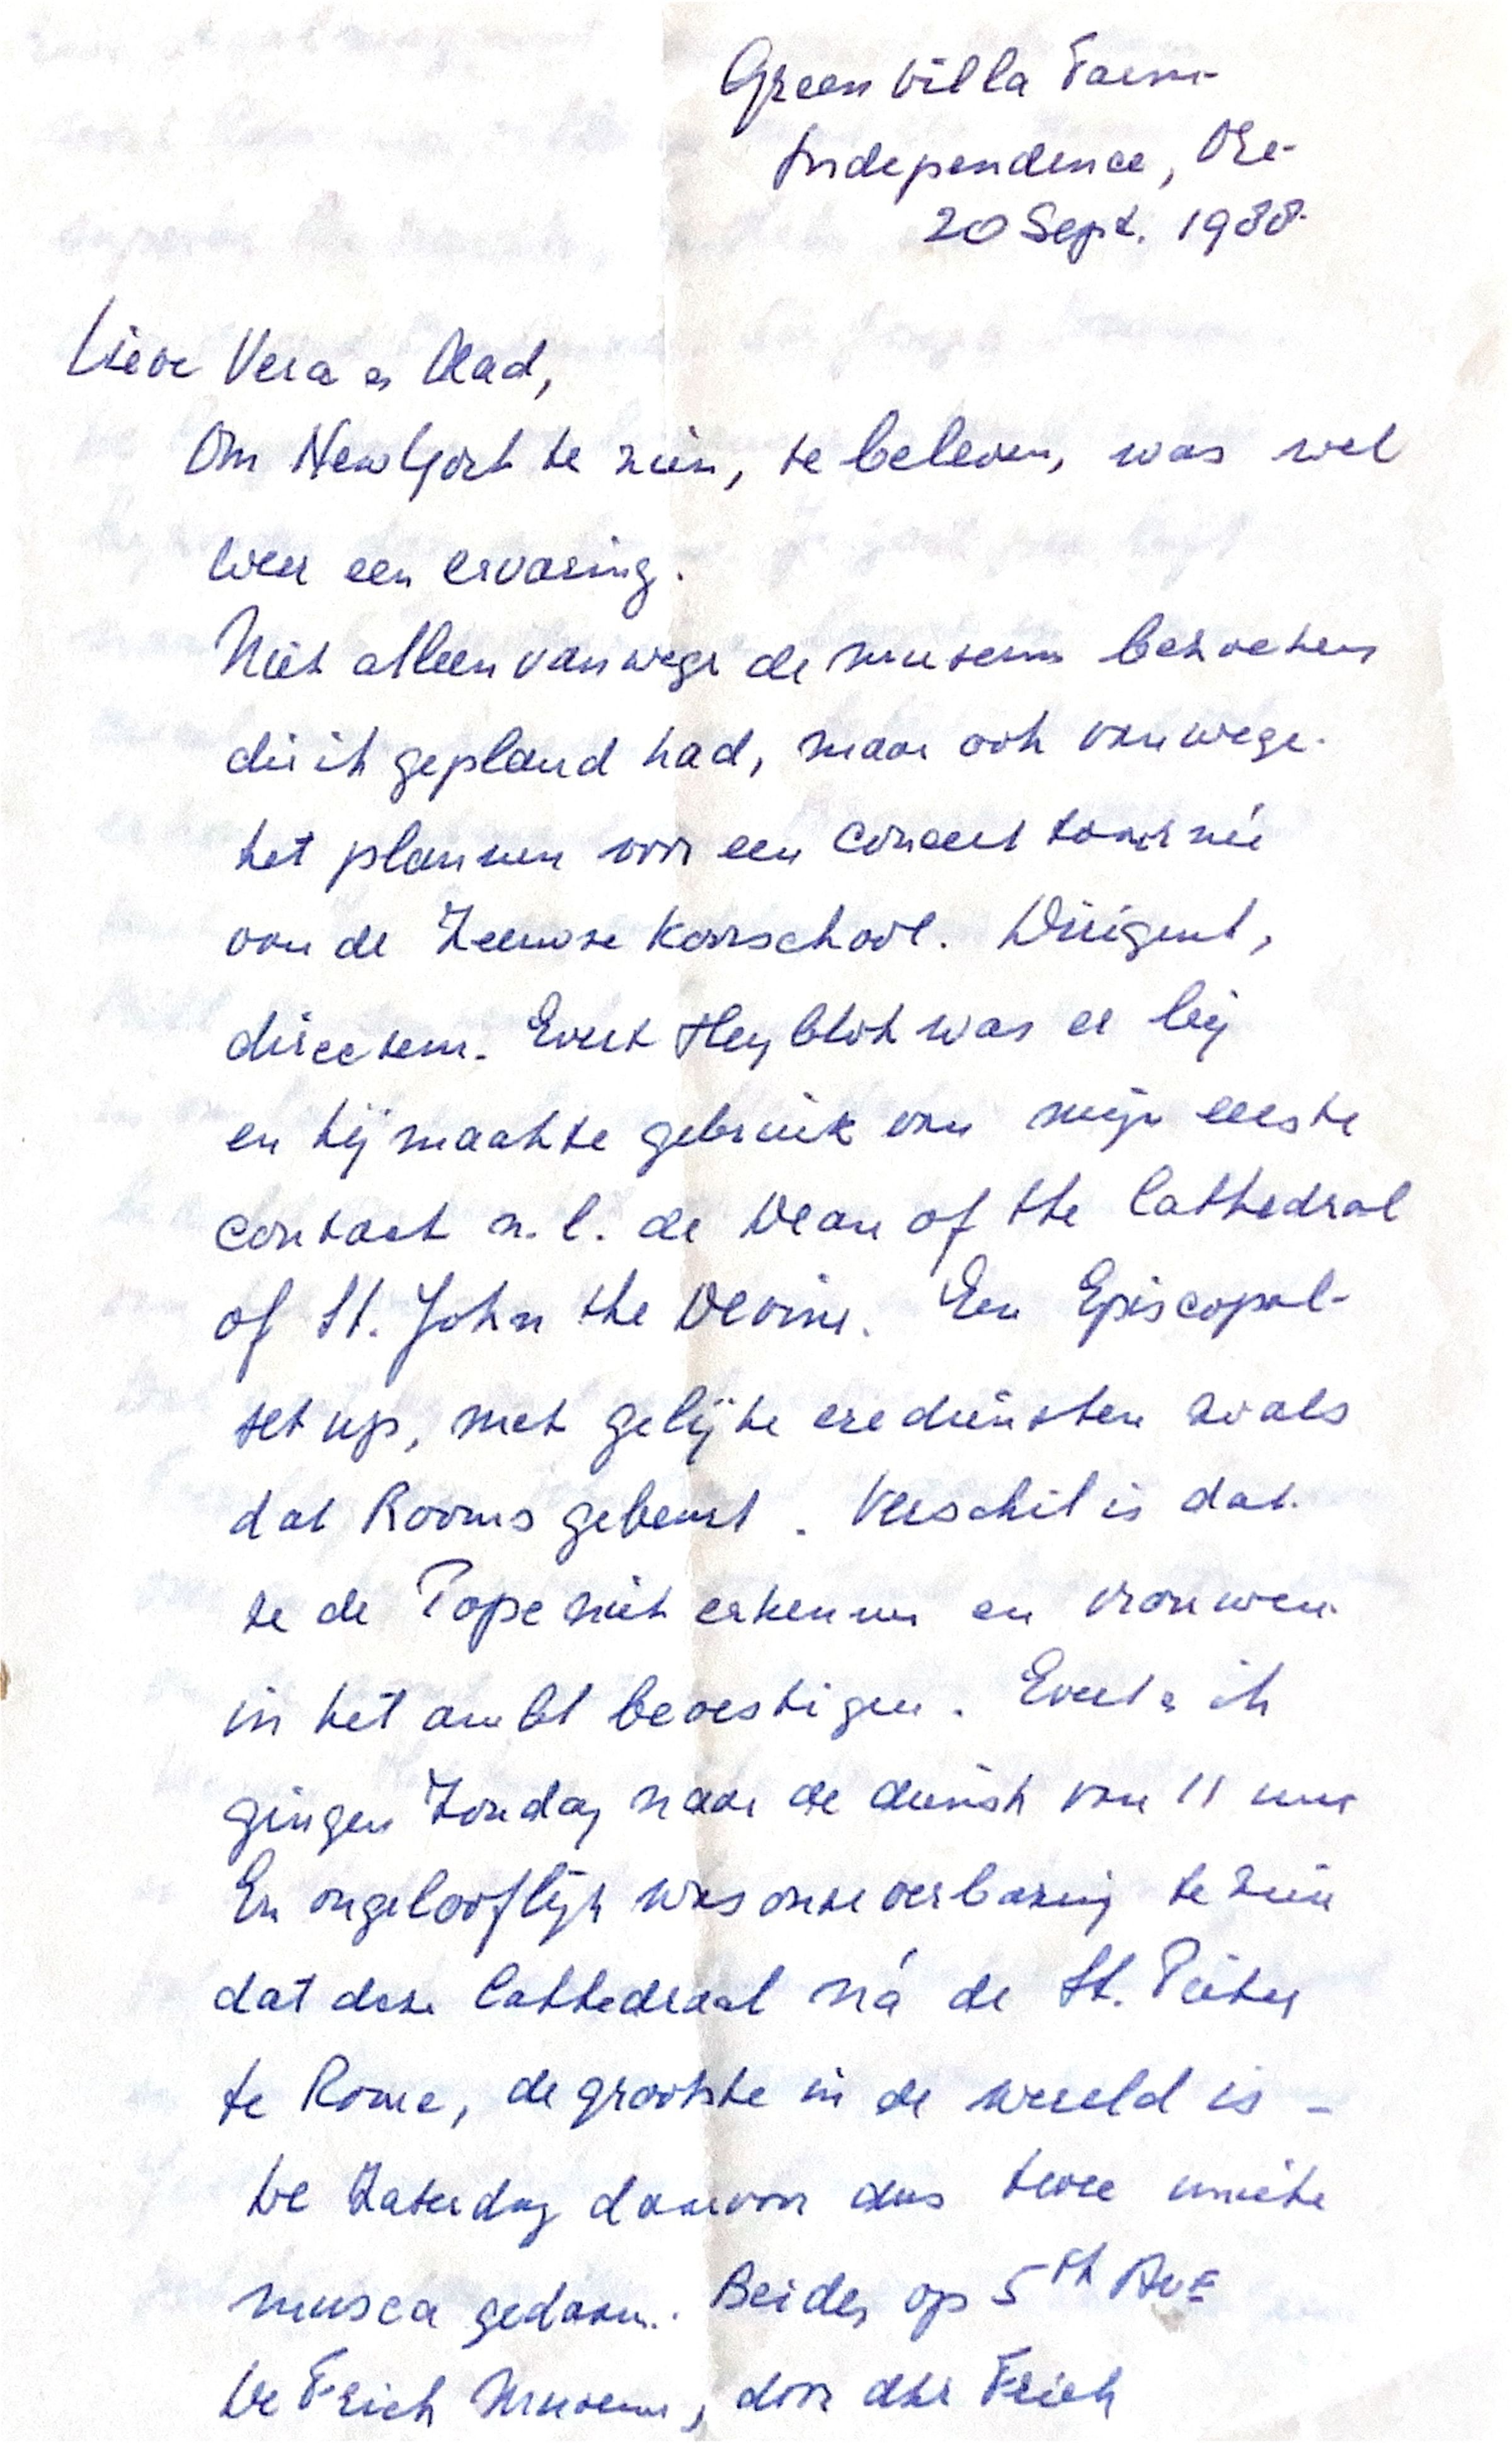 Green Villa Farm
Independence, Ore-
20 Sept. 1988.
Lieve Vera en Aad,
Om New York te zien, te beleven, was wel
weer een ervaring.
Niet alleen vanwege de museum bezoeken
die ik gepland had, maar ook vanwege
het plannen voor een concert tournée
van de Zeeuwse Koorschool. Dirigent,
directeur. Evert Heyblok was er bij
en hij maakte gebruik van mijn eerste
contact n.l. de Dean of the Cathedral
of St. John the Devine. Een Episcopal-
set up, met gelijke erediensten zoals
dat Rooms gebeurt. Verschil is dat
ze de Pope niet erkennen en vrouwen
in het ambt bevestigen. Evert en ik
gingen Zondag naar de dienst van 11 uur
En ongelooflijk was onze verbazing te zien
dat deze Cathedraal ná de St. Pieter
te Rome, de grootste in de wereld is -
De Zaterdag daarvoor dus twee unieke
musea gedaan. Beiden op 5th Ave
De Frick Museum, door dhr Frick